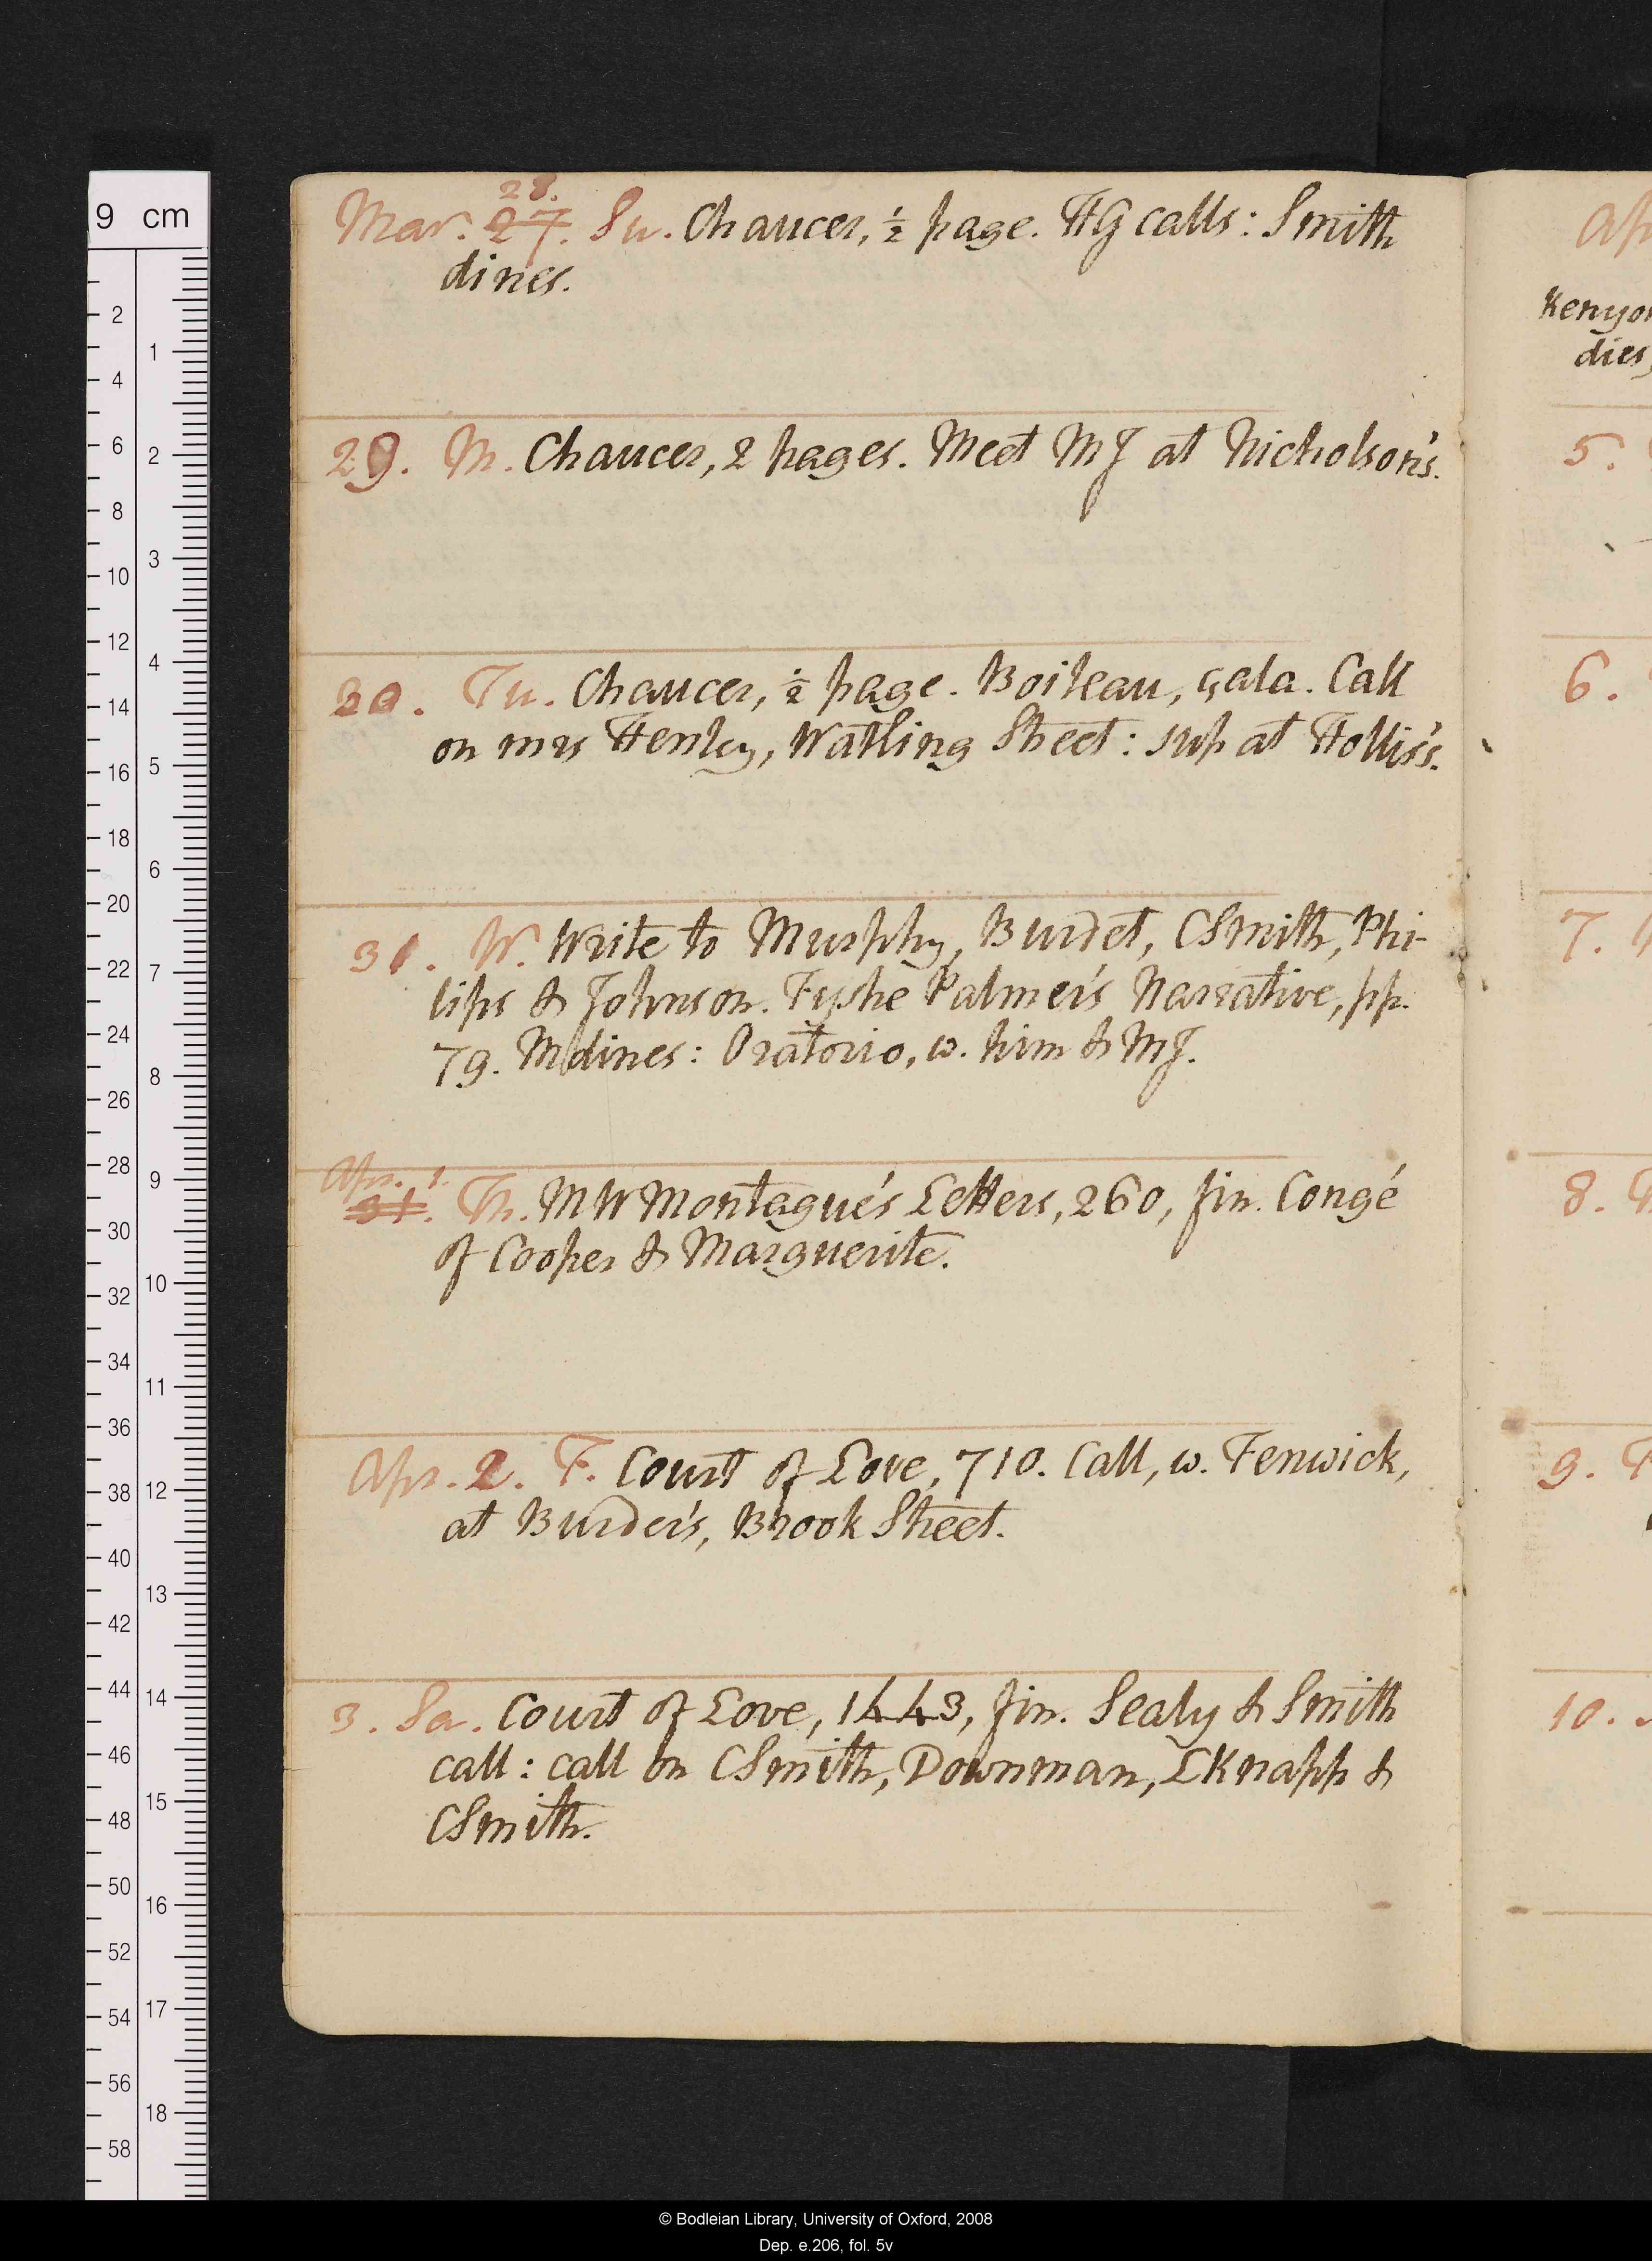 9 cm
28.
Mar. 27. Su. Chaucer, ½ page. HG calls: Smith
dines.
29. M. Chaucer, 2 pages. Meet MJ at Nicholson's.
30. Tu. Chaucer, ½ page. Boileau, çala. Call
on mrs Henley, Watling Street: sup at Hollis's.
31. W. Write to Murphy, Burdet, CSmith, Phi-
lips & Johnson. Fyshe Palmer's Narrative, pp.
79. M dines: Oratorio, w. him & MJ.
Apr. 1.
31. Th. MW Montague's Letters, 260, fin. Congé
of Cooper & Marguerite.
Apr. 2. F. Court of Love, 710. Call, w. Fenwick,
at Burder's, Brook Street.
3. Sa. Court of Love, 1443, fin. Sealy & Smith
call: call on CSmith, Downman, LKnapp &
CSmith.
Ap
Kenyon
dies,
5.
6.
7.
8.
9.
10.
© Bodleian Library, University of Oxford, 2008
Dep. e.206, fol. 5v